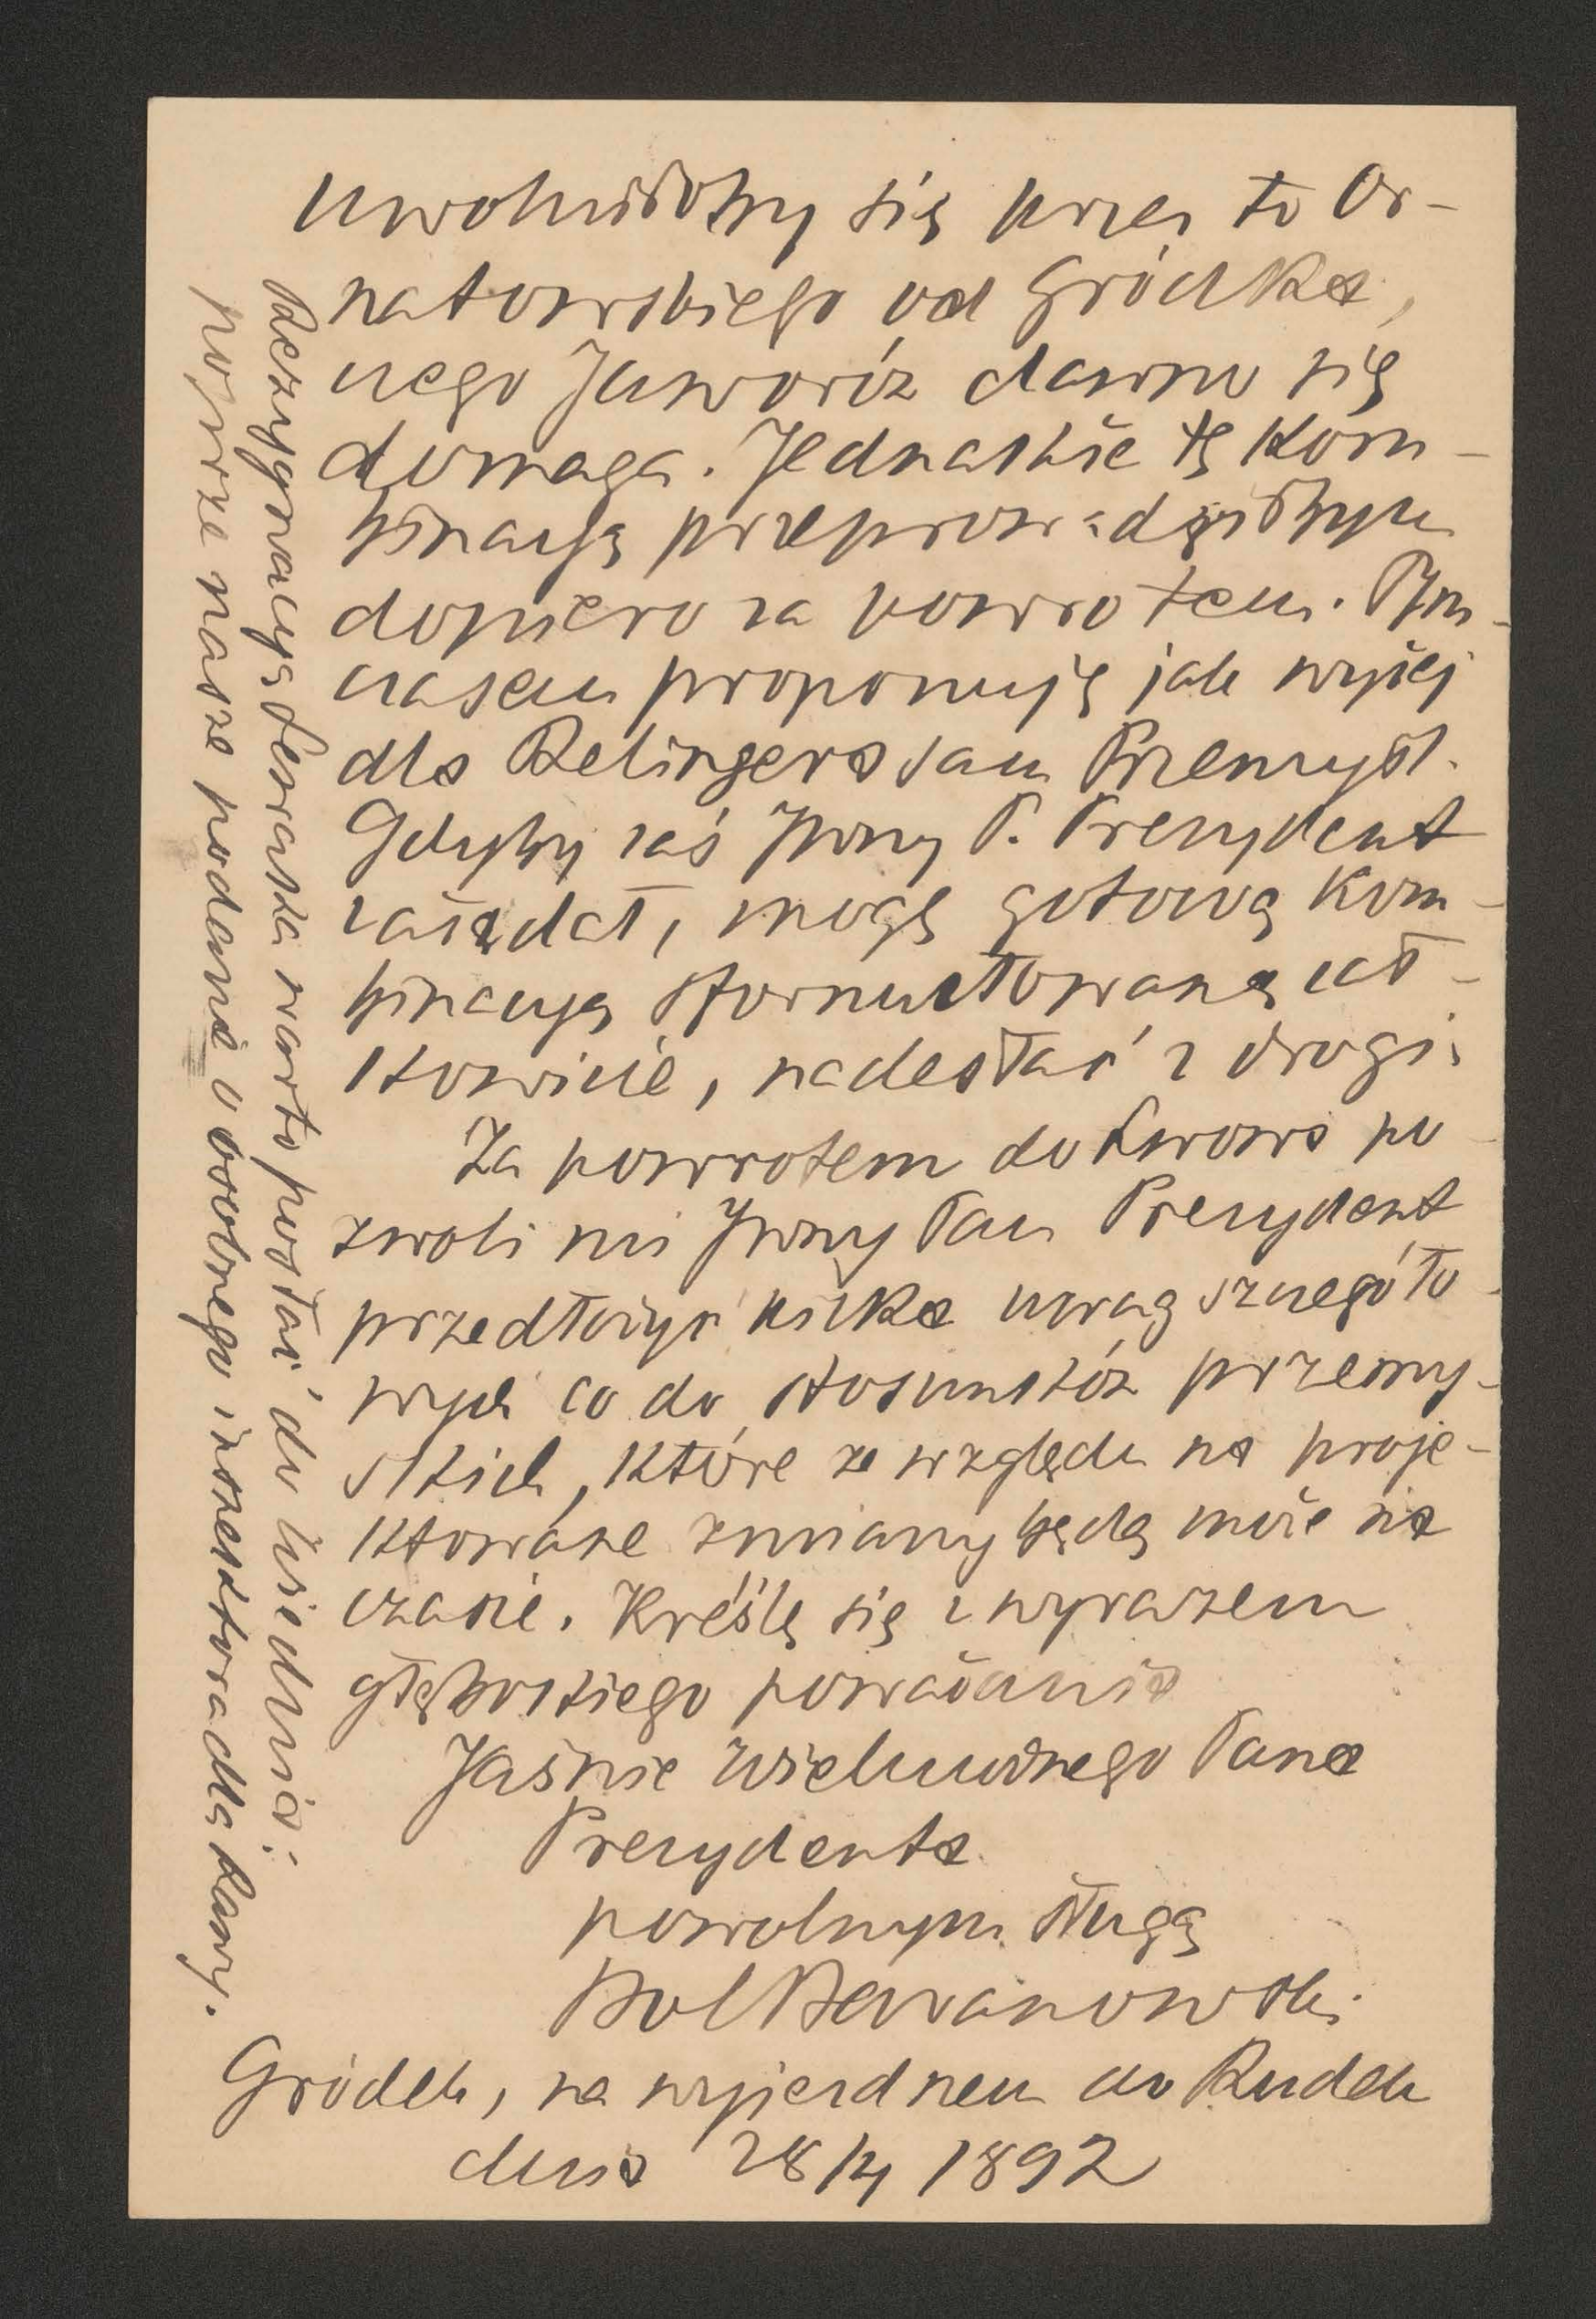 uwolniłoby się przez to Or-
natowskiego od Gródka,
czego Jaworów dawno się
domaga. Jednakże tę kom-
binacyą przeprowadziłbym
dopiero za powrotem. Tym-
czasem proponuję jak wyżej
dla Relingera sam Przemyśl.
Gdyby zaś JWny P. Prezydent
zażądał, mogę gotową kom-
binacyą sformułowaną cał-
kowicie, nadesłać z drogi.
Za powrotem do Lwowa po
zwoli mi JWny Pan Prezydent
przedłożyć kilka uwag szczegóło-
wych co do stosunków przemy-
skich, które ze względu na proje-
ktowane zmiany będą może na
czasie. Kreślę się z wyrazem
głębokiego poważania
Jaśnie Wielmożnego Pana
Prezydenta
powolnym sługą
Bol Baranowski
Gródek, na wyjezdnem do Rudek
dnia 28/4 1892
Rezygnacyą warto posłać do Wiednia;
poprze nasze podanie o osobnego inspektora dla Rawy.